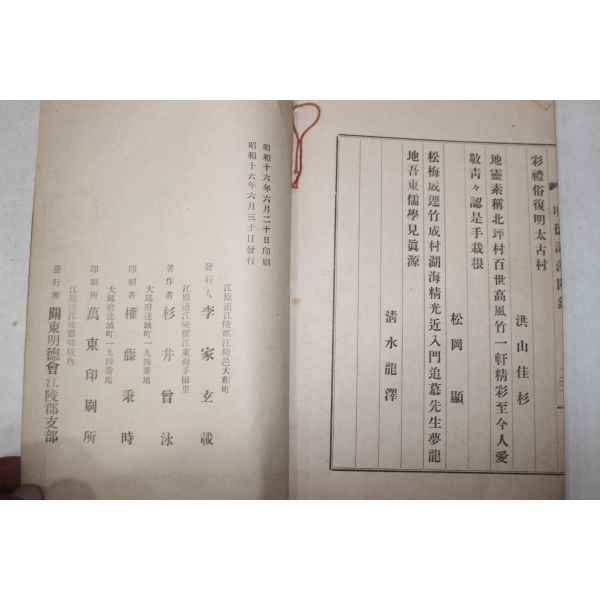 彩禮俗復明太古村
洪山佳杉
地靈素稱北坪村百世高風竹一軒精彩至今人愛
敬青々認是手栽根
松岡顯
松梅成逕竹成村湖海精光近入門追慕先生夢龍
地吾東儒學見眞源
清水龍澤
昭和十六年六月二十日印刷
昭和十六年六月三十日發行
江原道江陵郡江陵邑大和町
發行人 李家玄載
江原道江陵郡江東面茅田里
著作者 杉井曾泳
大邱府達城町一九四番地
印刷者 權藤秉時
大邱府達城町一九四番地
印刷所 萬東印刷所
江原道江陵郡鄕校內
發行所 關東明德會江陵郡支部